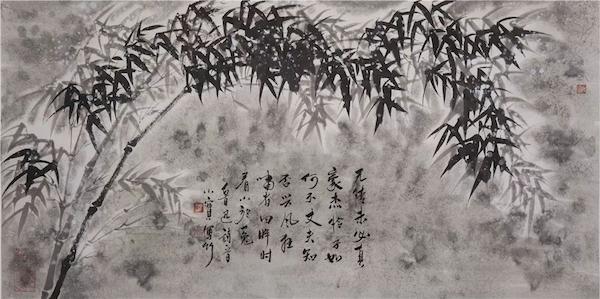 无情未必真
豪杰怜子如
何不丈夫知
否兴风狂
啸者回眸时
看小於菟
鲁迅诗
写竹